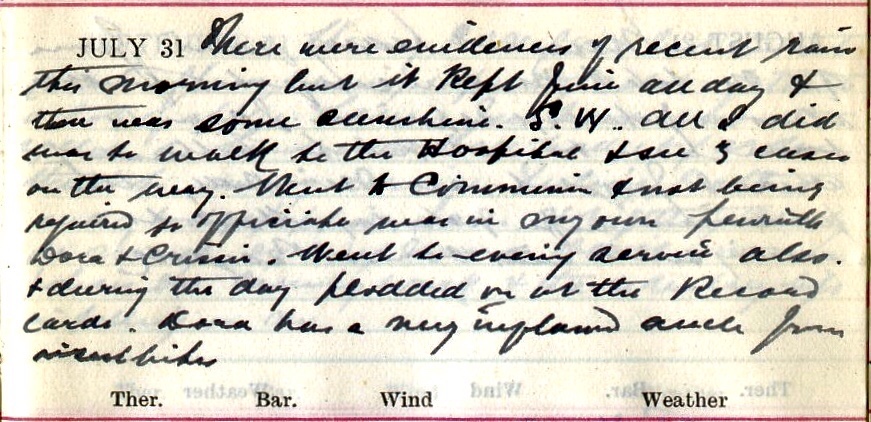 JULY 31 There were evidences of recent rain
this morning but it kept fine all day &
there was some sunshine. S.W. All I did
was to walk to the Hospital & see 3 cases
on the way. Went to Communion & not being
required to officiate was in my own pew with
Dora & Crissie. Went to evening service also.
& during the day plodded on at the Record
cards. Dora has a very inflamed ancle from
insect bites
Ther. Bar. Wind Weather